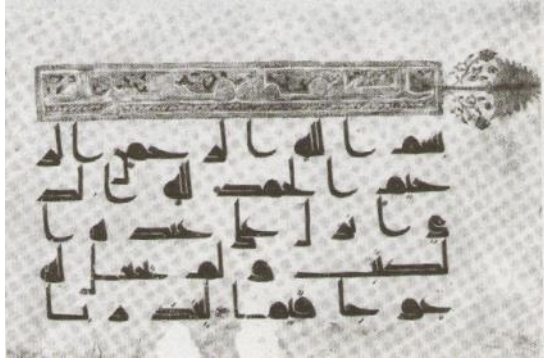 بسم الله الرحمن الر
حيم الحمد لله الذ
ي انزل على عبده ا
لكتب و لم يجعل له
عوجا قيما لينذر با